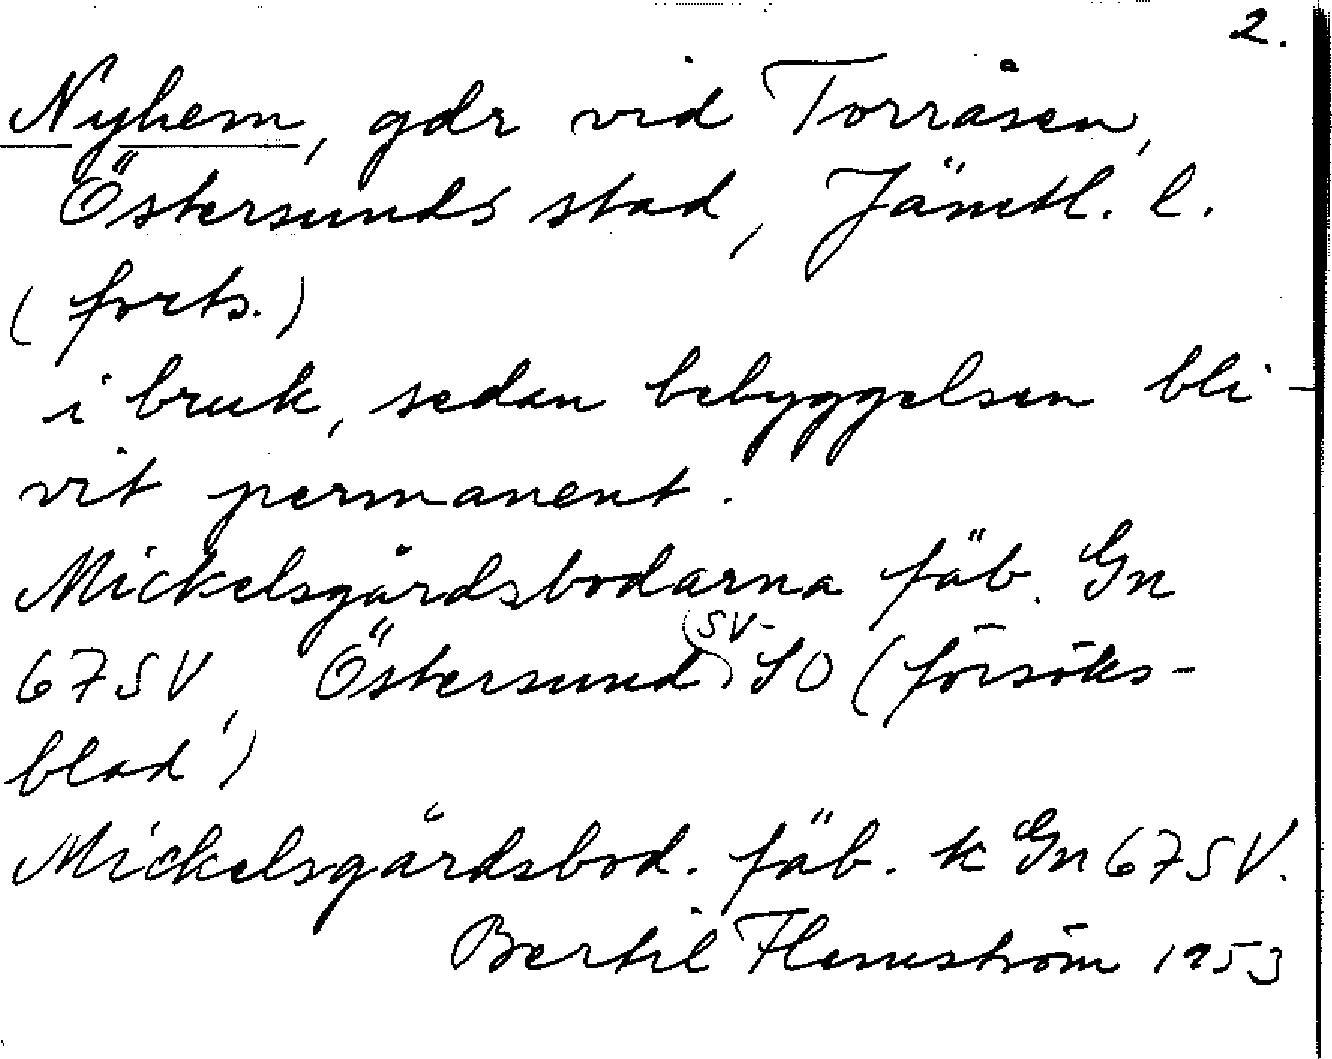 2.
Nyhem, gdr vid Torråsen,
Östersunds stad, Jämtl. l.
(forts.)
i bruk, sedan bebyggelsen bli-
vit permanent.
Mickelsgårdsbodarna fäb. Gn
67SV, Östersund SV-SO (försöks-
blad)
Mickelsgårdsbod. fäb. k Gn 67SV.
Bertil Flemström 1953